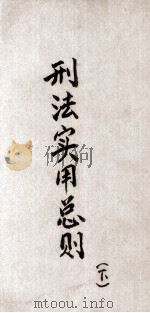 刑法实用总则
(下)
mtoou.info